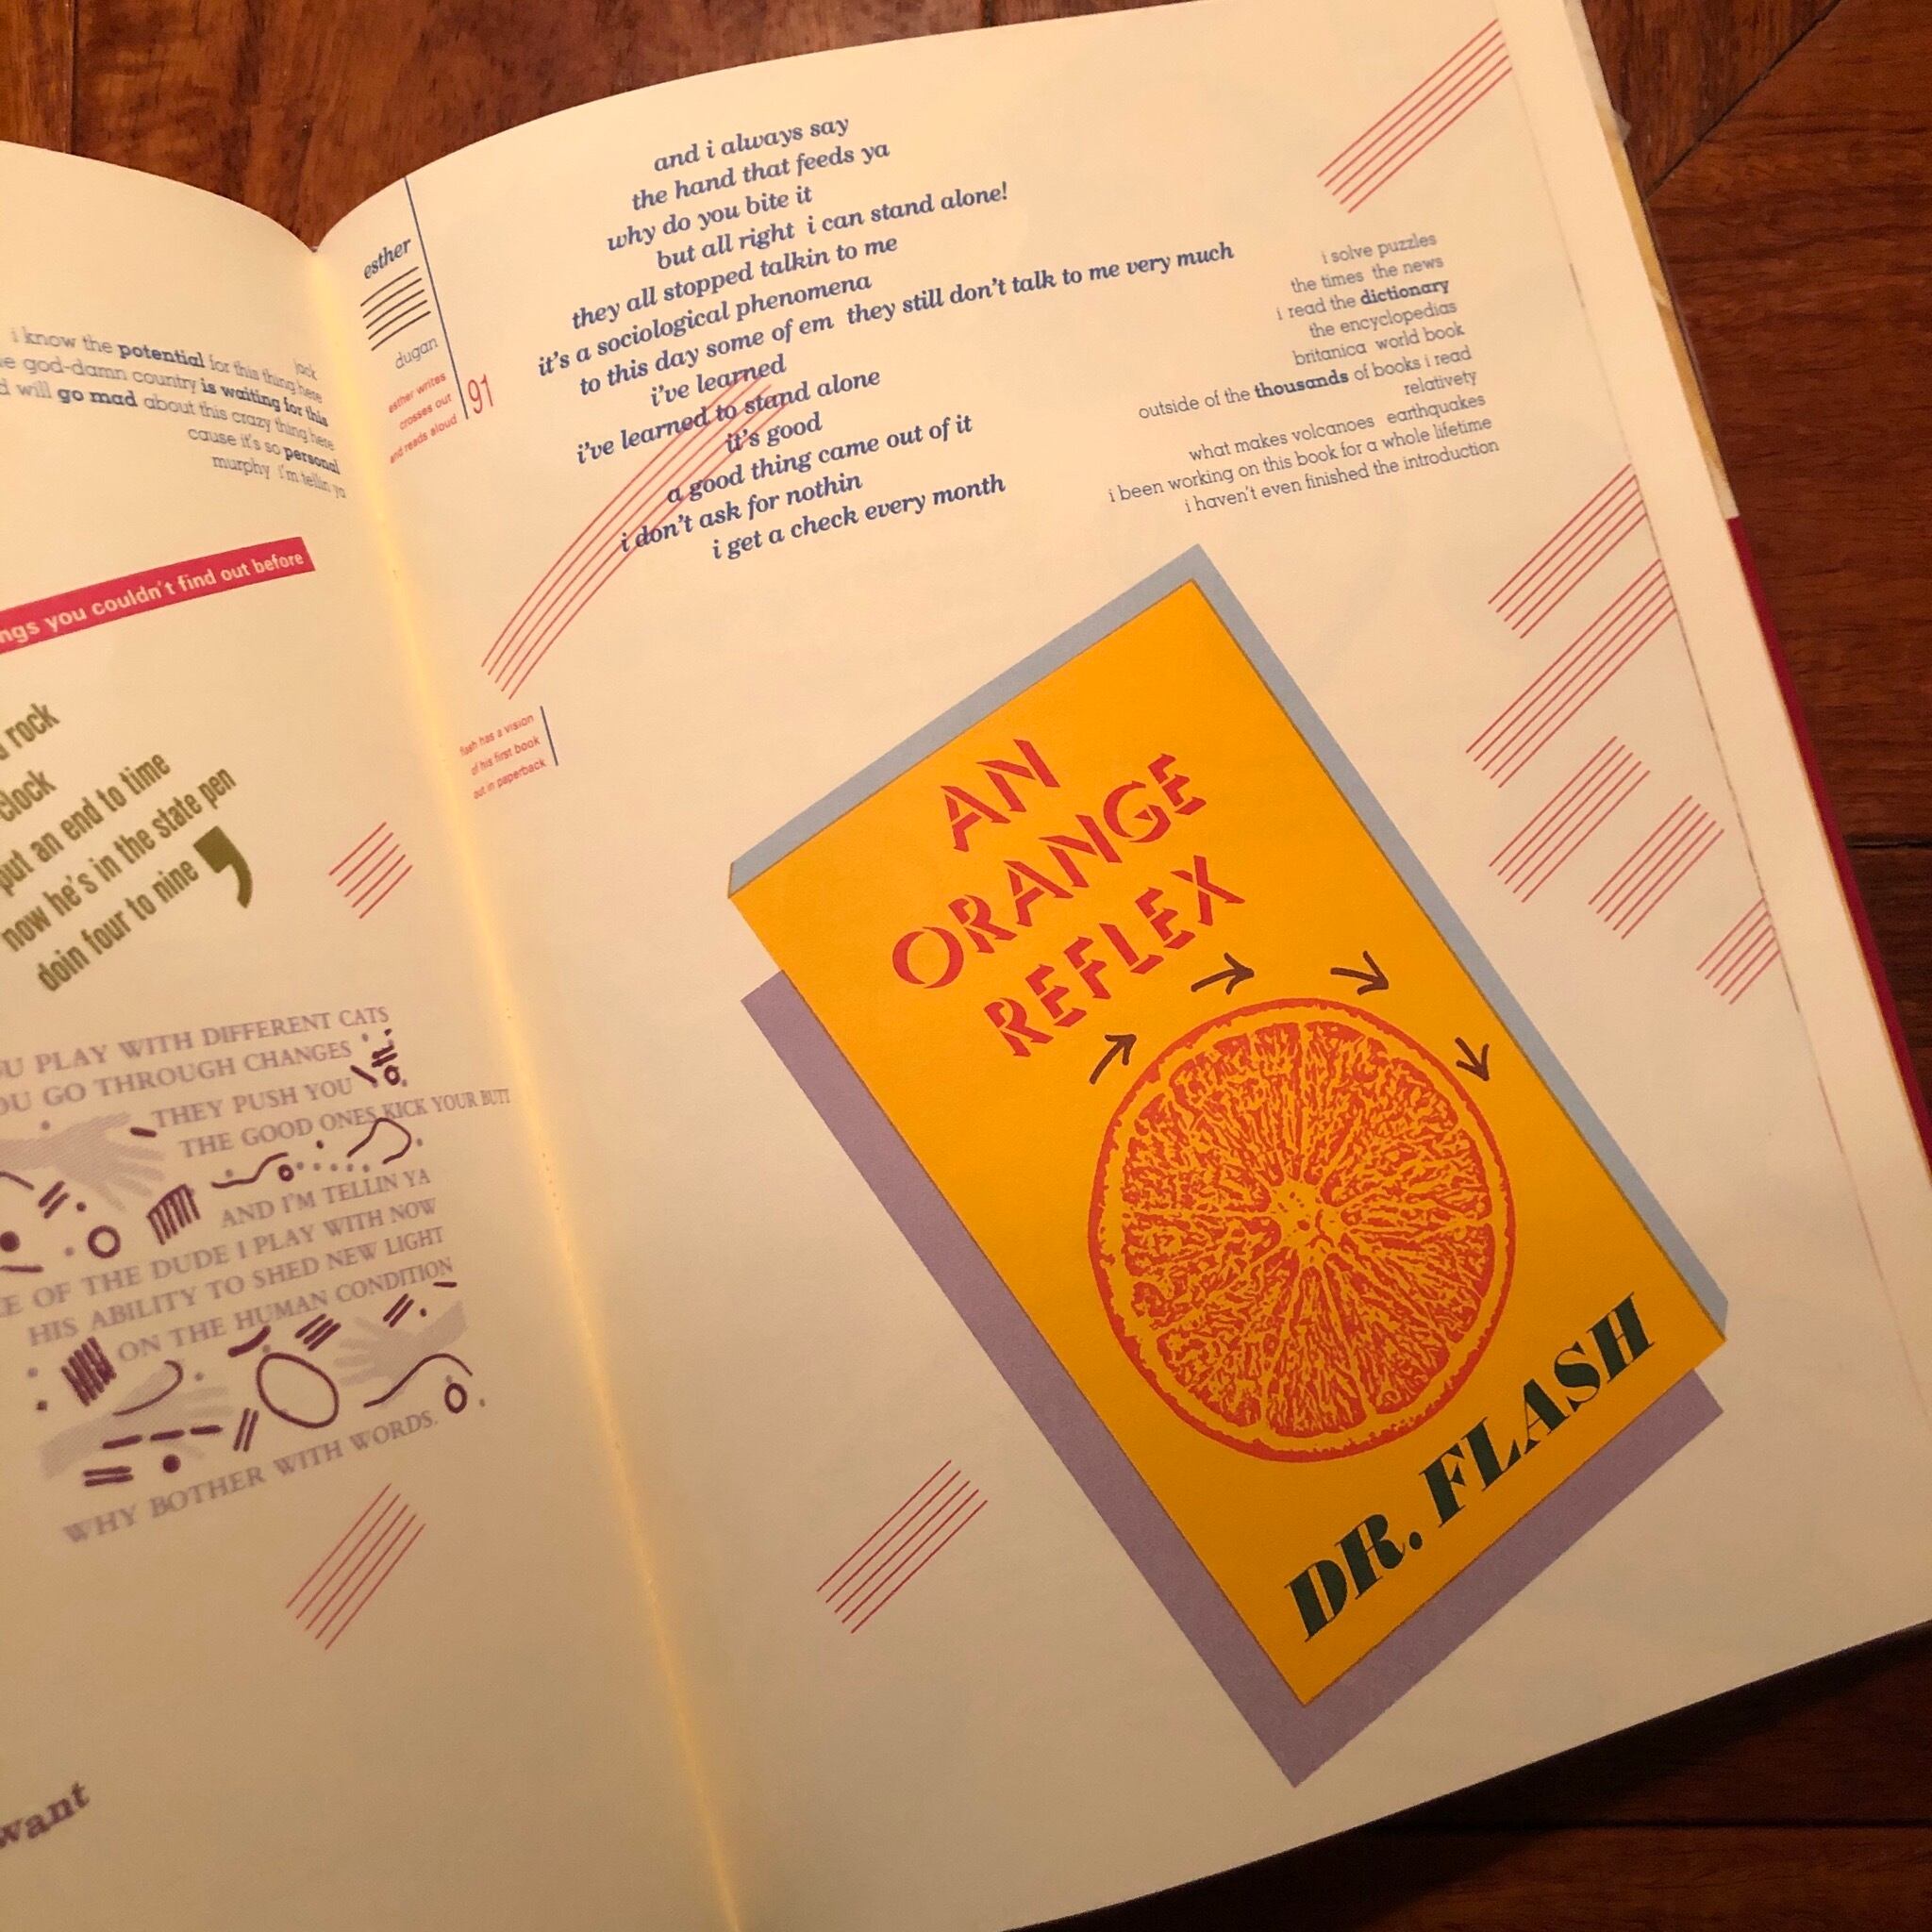 i know the potential for this thing here
jack
e god-damn country is waiting for this
d will go mad about this crazy thing here
cause it's so personal
murphy i'm tellin ya
ngs you couldn't find out before
rock
clock
put an end to time
now he's in the state pen
doin four to nine ’
OU PLAY WITH DIFFERENT CATS
OU GO THROUGH CHANGES
THEY PUSH YOU
THE GOOD ONES KICK YOUR BUTT
AND I'M TELLIN YA
E OF THE DUDE I PLAY WITH NOW
HIS ABILITY TO SHED NEW LIGHT
ON THE HUMAN CONDITION
WHY BOTHER WITH WORDS.
want
esther
dugan
esther writes
crosses out
and reads aloud
91
and i always say
the hand that feeds ya
why do you bite it
but all right i can stand alone!
they all stopped talkin to me
it's a sociological phenomena
to this day some of em they still don't talk to me very much
i've learned
i've learned to stand alone
it's good
a good thing came out of it
i don't ask for nothin
i get a check every month
i solve puzzles
the times the news
i read the dictionary
the encyclopedias
britanica world book
outside of the thousands of books i read
relativety
what makes volcanoes earthquakes
i been working on this book for a whole lifetime
i haven't even finished the introduction
flash has a vision
of his first book
out in paperback
AN
ORANGE
REFLEX
DR. FLASH